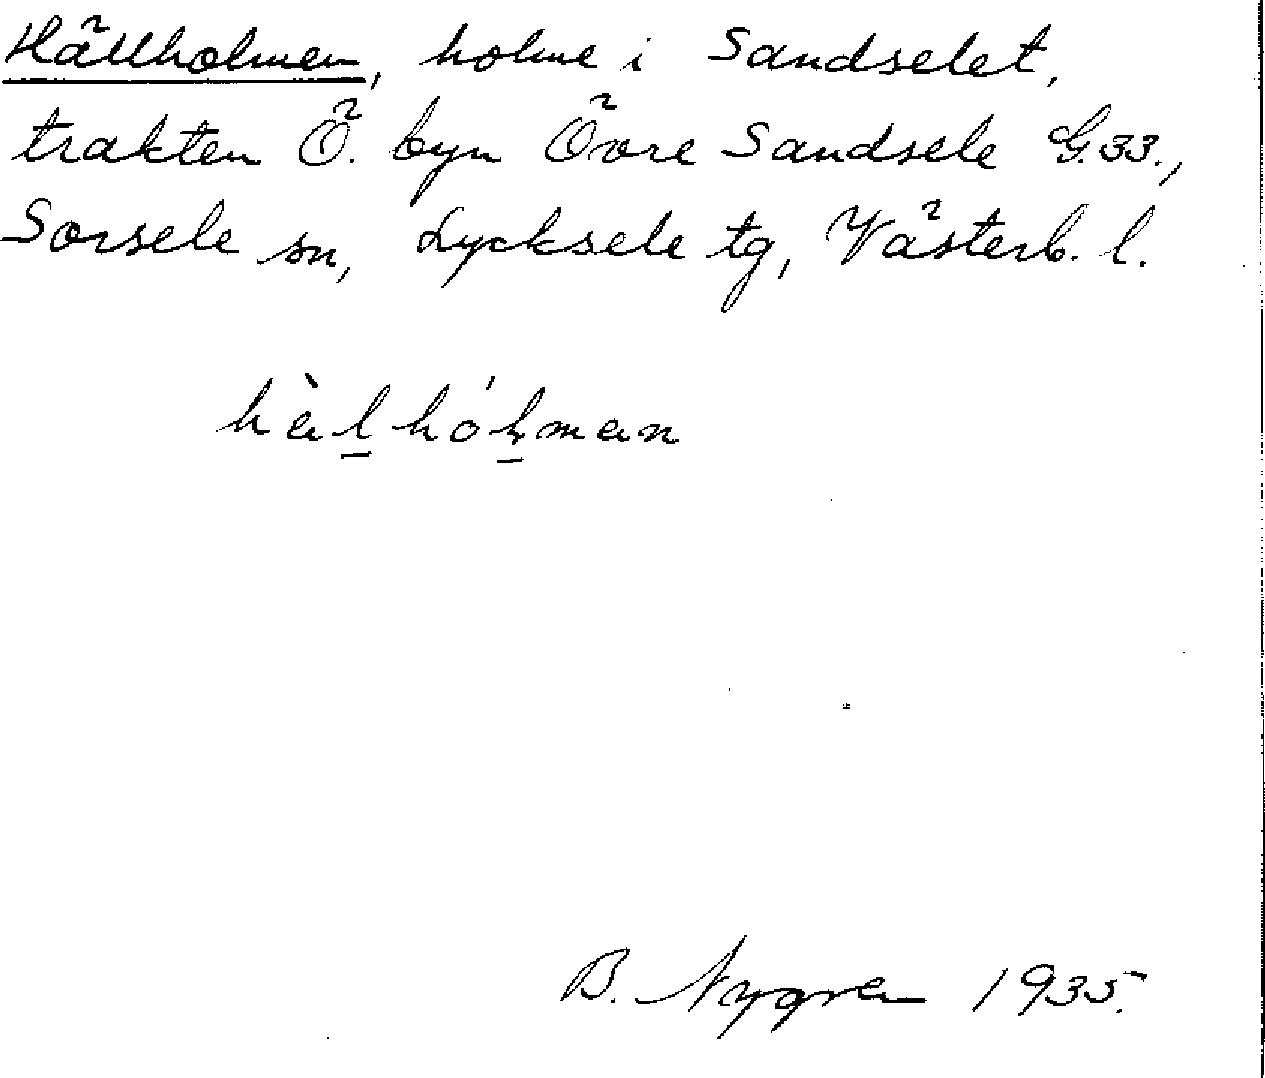 Hällholmen, holme i Sandselet,
trakten Ö. byn Övre Sandsele G.33.,
Sorsele sn, Lycksele tg, Västerb. l.
B. Nygren 1935.